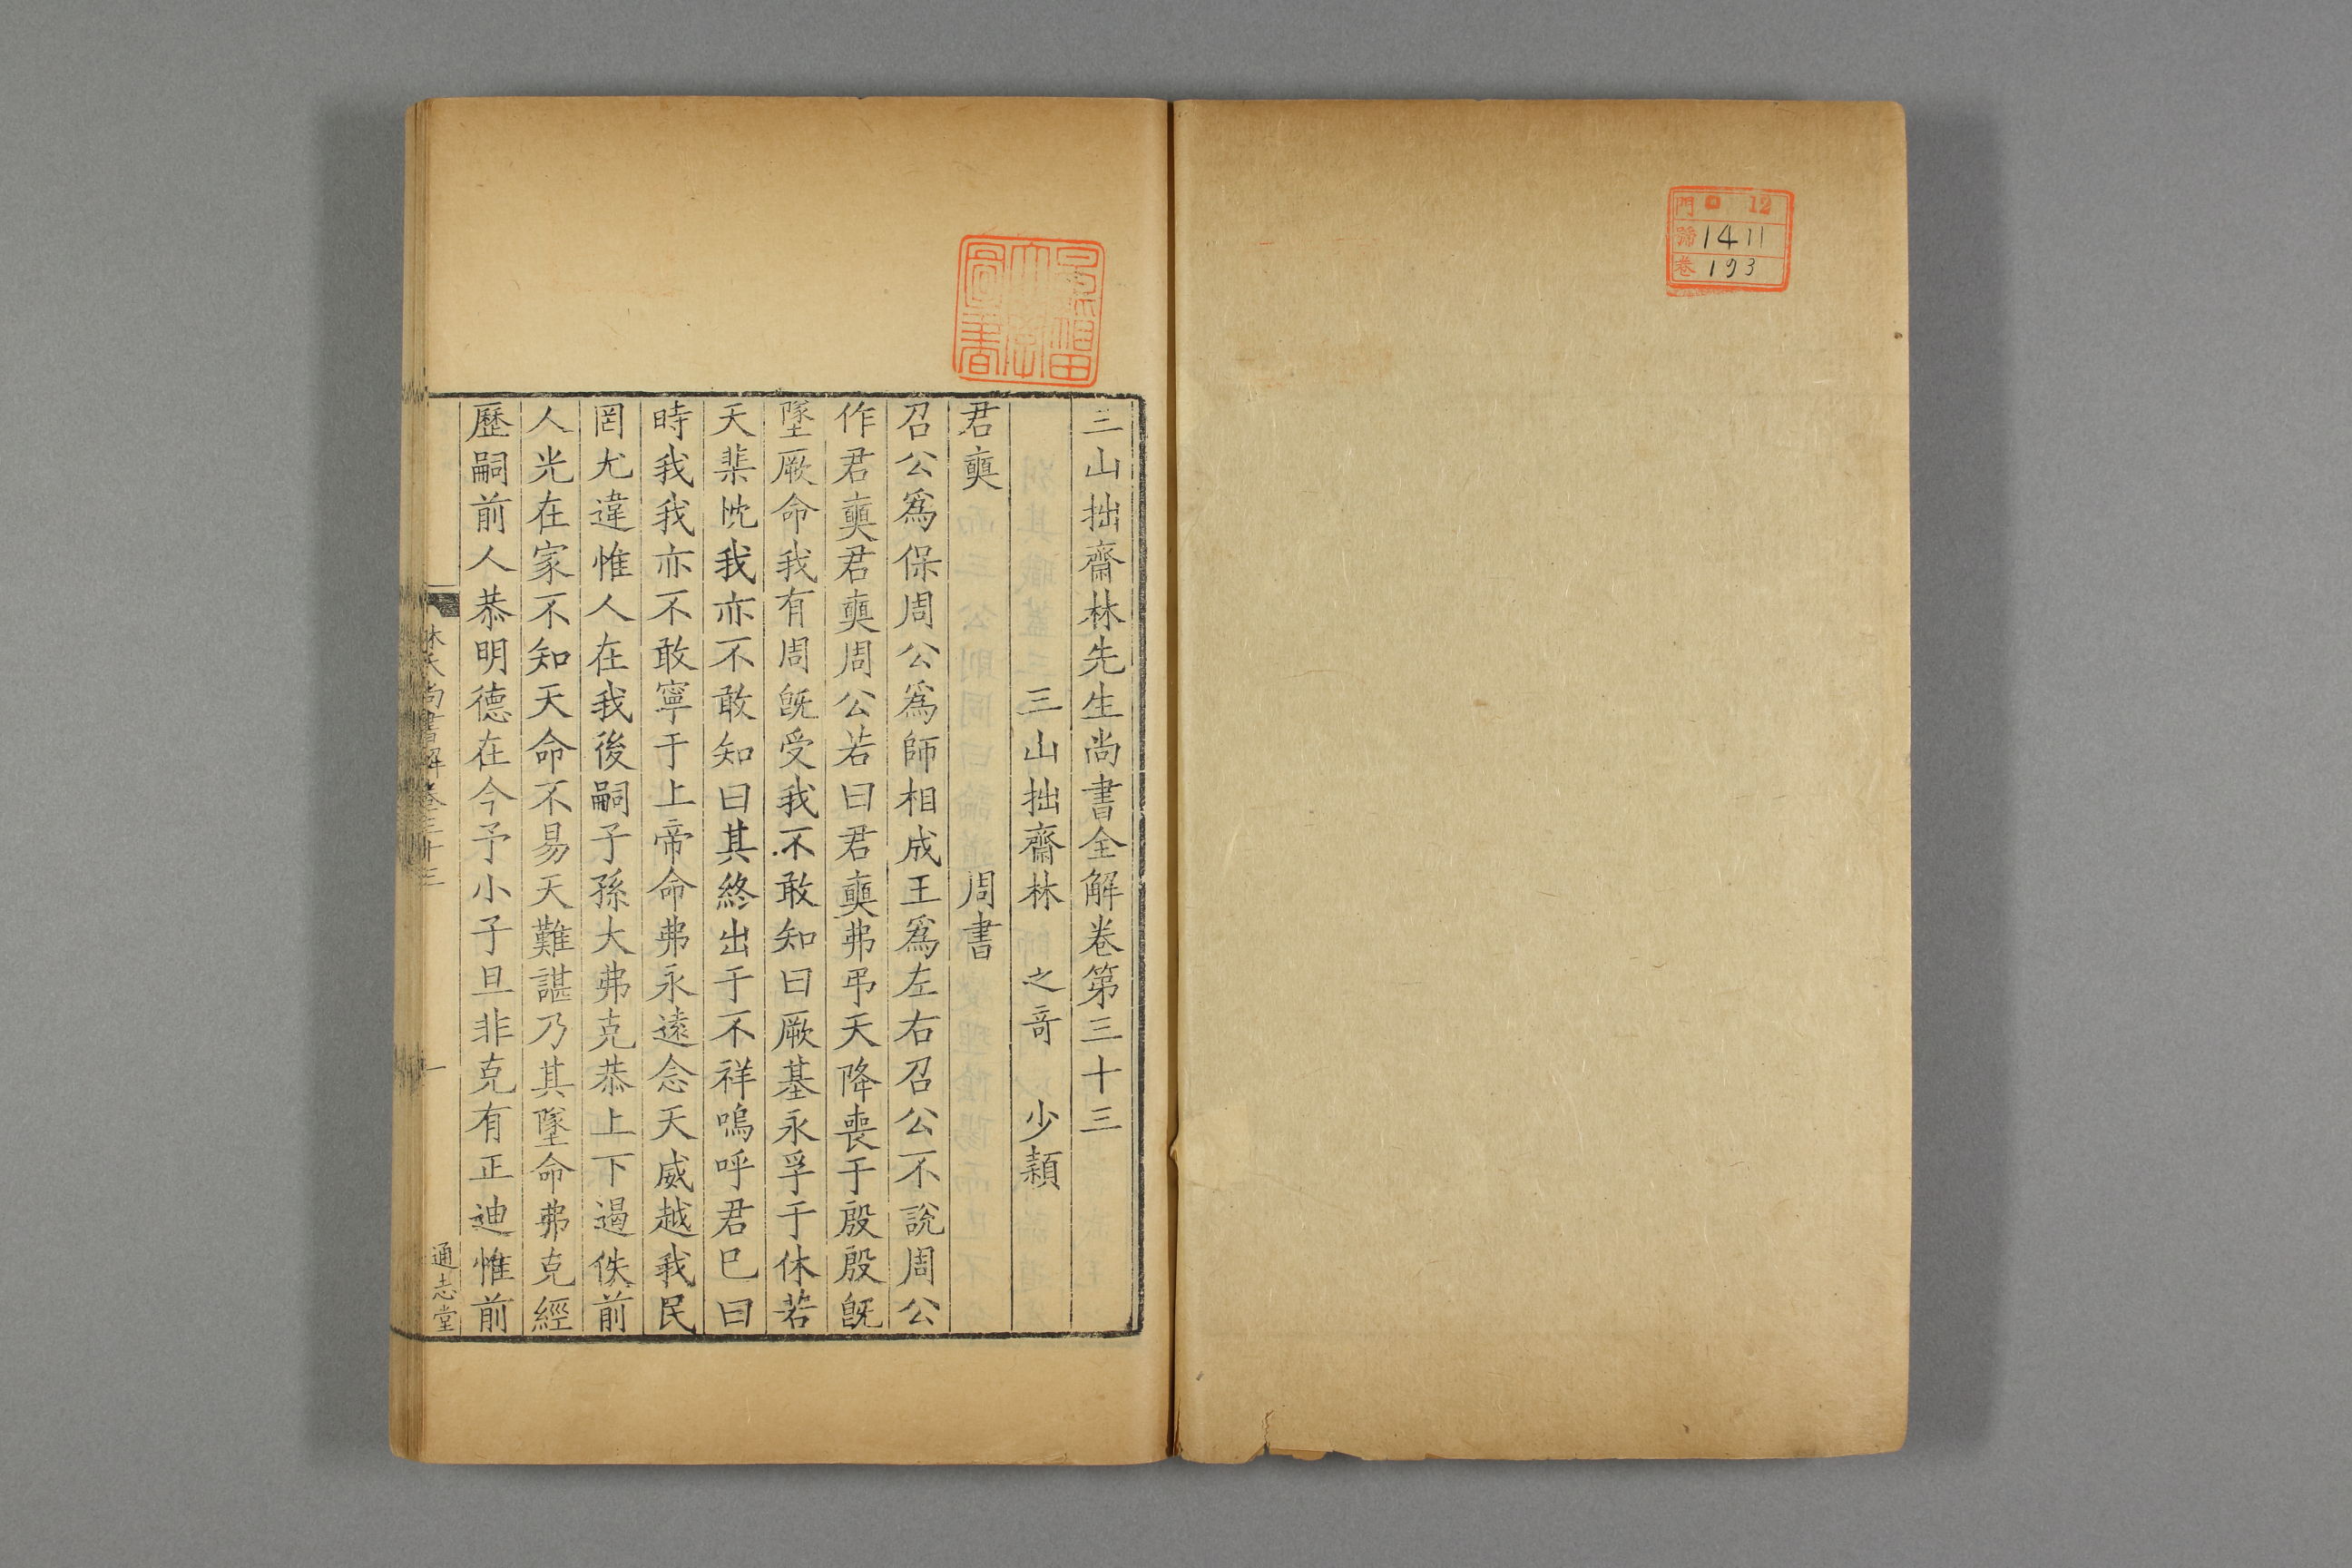 門 ロ 12
號 1411
巻 193
早稲田大學圖書
三山拙齋林先生尚書全解卷第三十三
三山拙齋林 之竒 少穎
君奭 周書
召公爲保周公爲師相成王爲左右召公不說周公
作君奭君奭周公若曰君奭弗弔天降喪于殷殷旣
墜厥命我有周旣受我不敢知曰厥基永孚于休若
天棐忱我亦不敢知曰其終出于不祥嗚呼君巳曰
時我我亦不敢寧于上帝命弗永遠念天威越我民
罔尤違惟人在我後嗣子孫大弗克恭上下遏佚前
人光在家不知天命不易天難諶乃其墜命弗克經
歷嗣前人恭明德在今予小子旦非克有正迪惟前
林氏尚書解卷三十三 一 通志堂